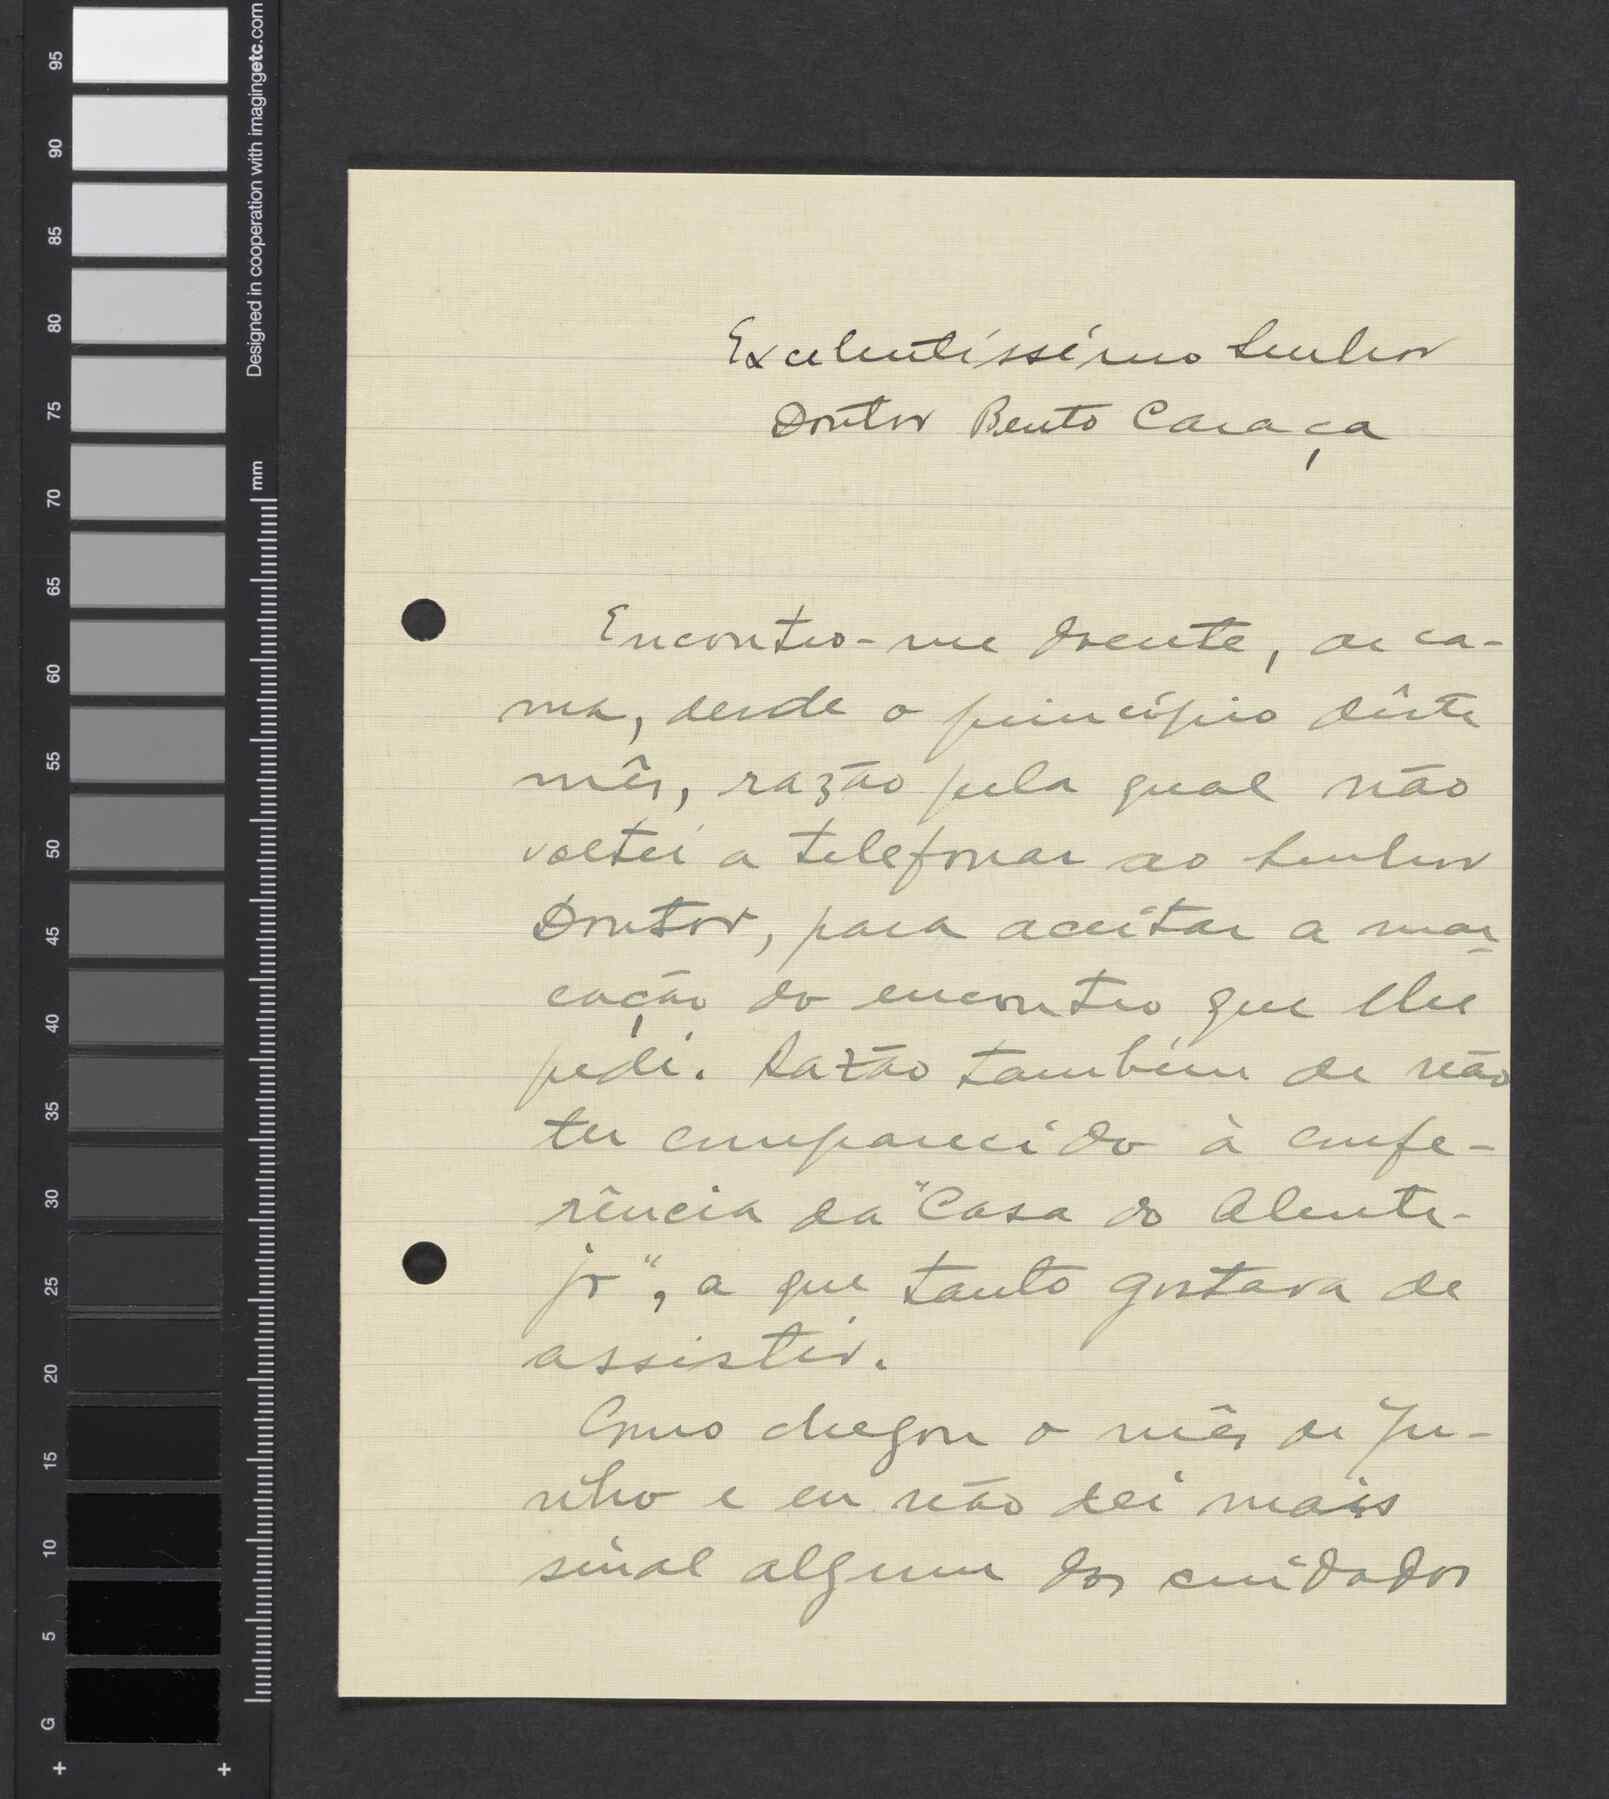 Excelentíssimo Senhor
Doutor Bento Caraça
Encontro-me doente, de ca-
ma, desde o princípio dêste
mês, razão pela qual não
voltei a telefonar ao Senhor
Doutor, para aceitar a mar-
cação do encontro que lhe
pedi. Razão também de não
ter comparecido à confe-
rência da "Casa do Alente-
jo", a que tanto gostava de
assistir.
Como chegou o mês de Ju-
nho e eu não dei mais
sinal algum dos cuidados
Designed in cooperation with imagingetc.com
mm
95
90
85
80
75
70
65
60
55
50
45
40
35
30
25
20
15
10
5
G